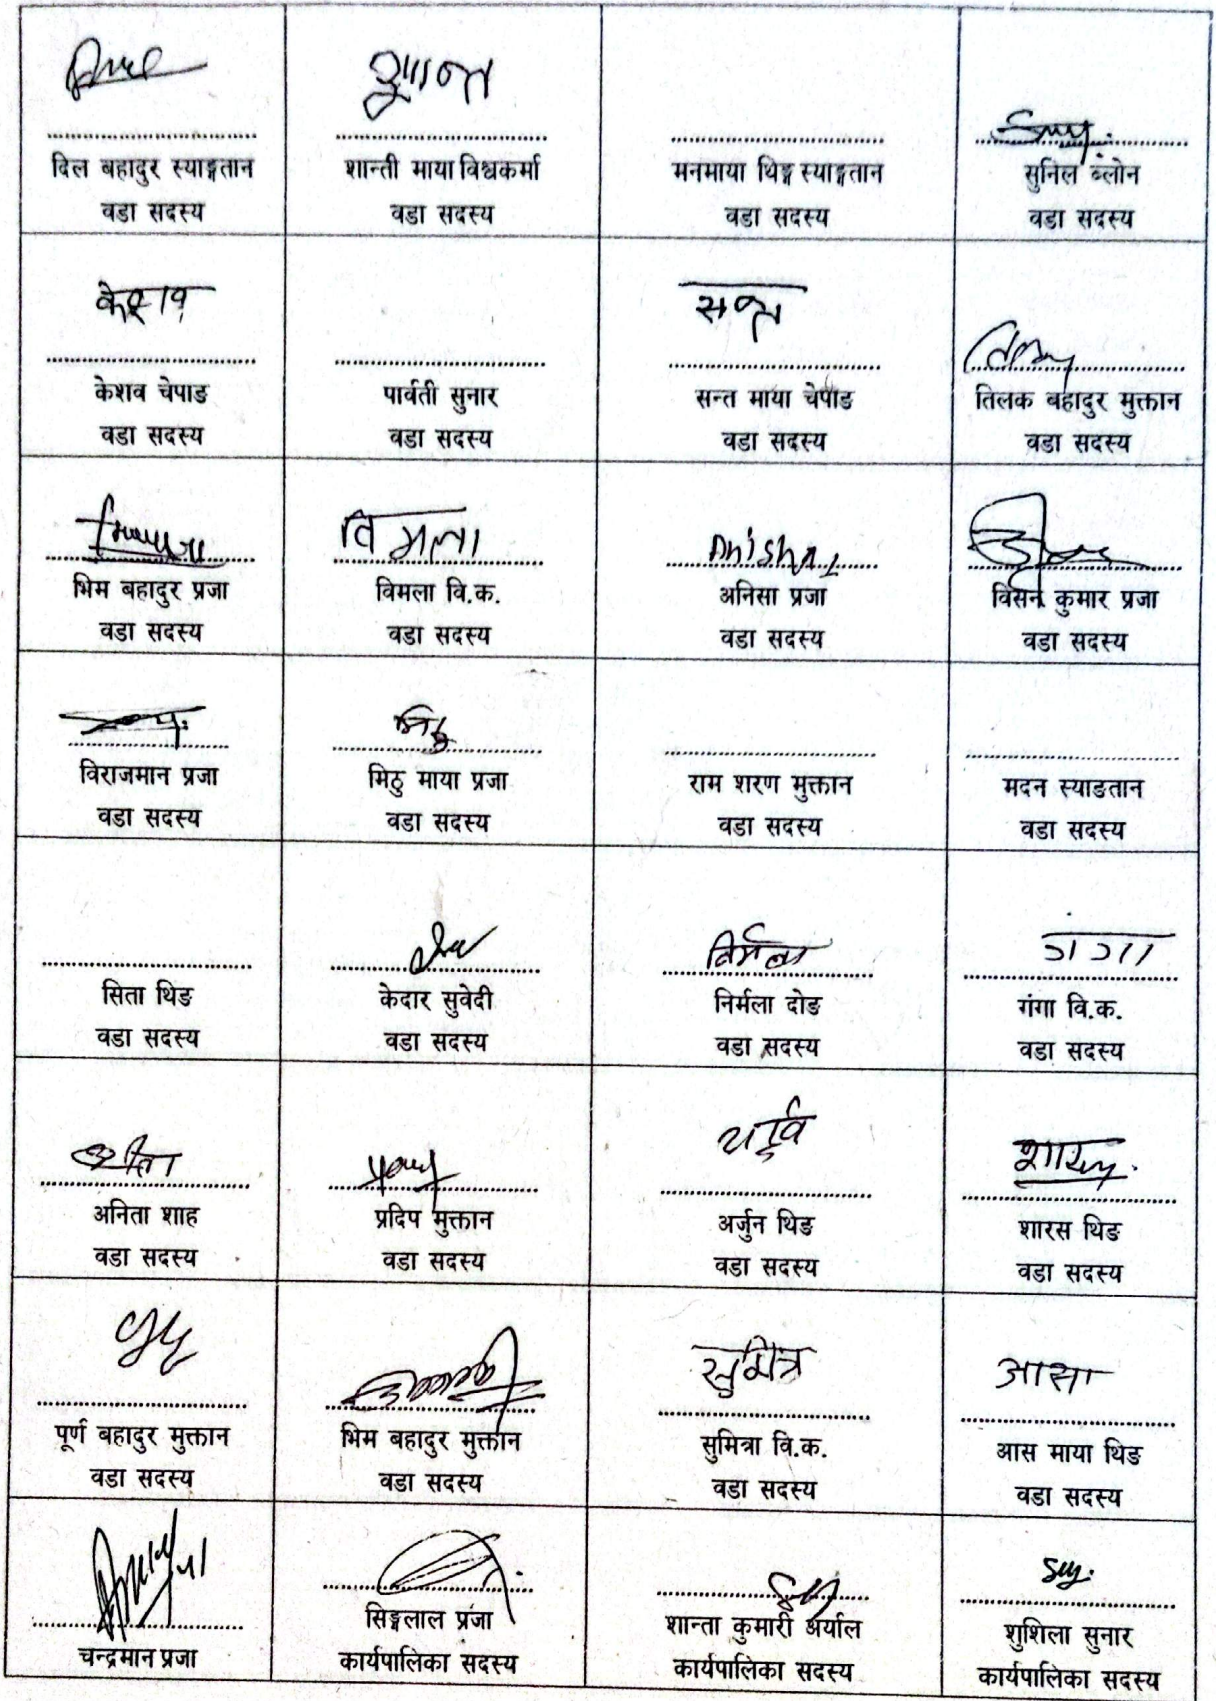 शान्त
दिल बहादुर स्याङ्गतान
वडा सदस्य
शान्ती माया विश्वकर्मा
वडा सदस्य
मनमाया थिङ्ग स्याङ्गतान
वडा सदस्य
सुनिल ब्लोन
वडा सदस्य
केशव
सन्त
केशव चेपाङ
वडा सदस्य
पार्वती सुनार
वडा सदस्य
सन्त माया चेपाङ
वडा सदस्य
तिलक बहादुर मुक्तान
वडा सदस्य
विमला
Anisha
भिम बहादुर प्रजा
वडा सदस्य
विमला वि.क.
वडा सदस्य
अनिसा प्रजा
वडा सदस्य
विसन कुमार प्रजा
वडा सदस्य
मिठु
विराजमान प्रजा
वडा सदस्य
मिठु माया प्रजा
वडा सदस्य
राम शरण मुक्तान
वडा सदस्य
मदन स्याङतान
वडा सदस्य
निर्मला
गंगा
सिता थिङ
वडा सदस्य
केदार सुवेदी
वडा सदस्य
निर्मला दोङ
वडा सदस्य
गंगा वि.क.
वडा सदस्य
अनिता शाह
वडा सदस्य
प्रदिप मुक्तान
वडा सदस्य
अर्जुन थिङ
वडा सदस्य
शारस थिङ
वडा सदस्य
सुमित्रा
आसा
पूर्ण बहादुर मुक्तान
वडा सदस्य
भिम बहादुर मुक्तान
वडा सदस्य
सुमित्रा वि.क.
वडा सदस्य
आस माया थिङ
वडा सदस्य
चन्द्रमान प्रजा
सिङ्गलाल प्रजा
कार्यपालिका सदस्य
शान्ता कुमारी अर्याल
कार्यपालिका सदस्य
शुशिला सुनार
कार्यपालिका सदस्य